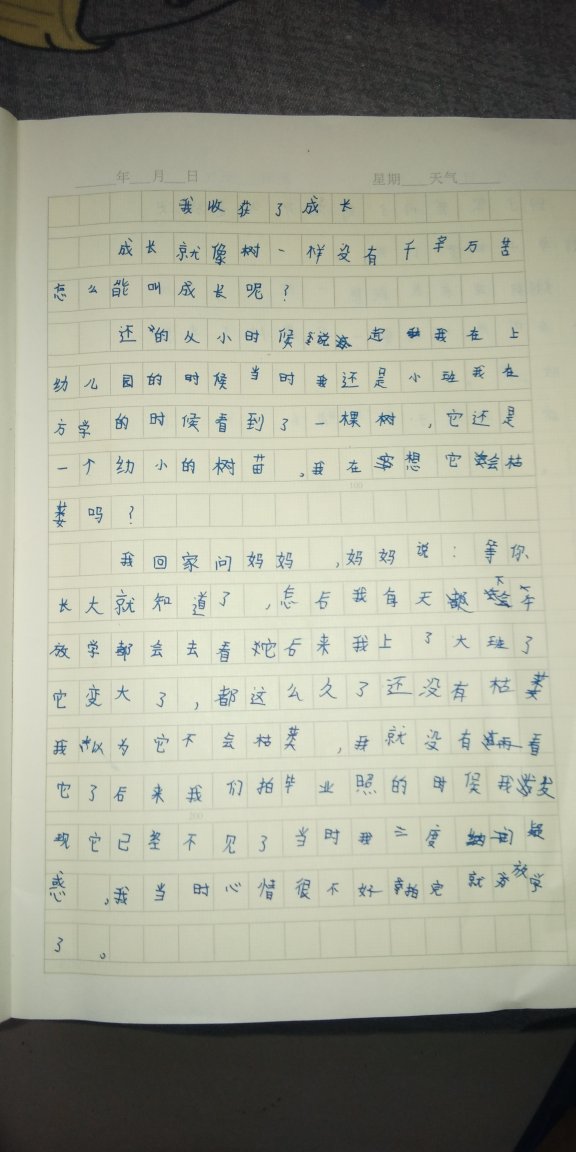 年 月 日 星期 天气
我收获了成长
成长就像树一样没有千辛万苦
怎么能叫成长呢?
还的从小时候说起我在上
幼儿园的时候当时我还是小班我在
方学的时候看到了一棵树,它还是
一个幼小的树苗。我在想它会枯
萎吗?
我回家问妈妈,妈妈说:等你
长大就知道了,怎后我每天下午
放学都会去看它后来我上了大班了
它变大了,都这么久了还没有枯萎
我以为它不会枯萎,我就没有再看
它了后来我们拍毕业照的时候我发
现它已经不见了当时我三度疑
惑,我当时心情很不好拍完就放学
了。
100
200